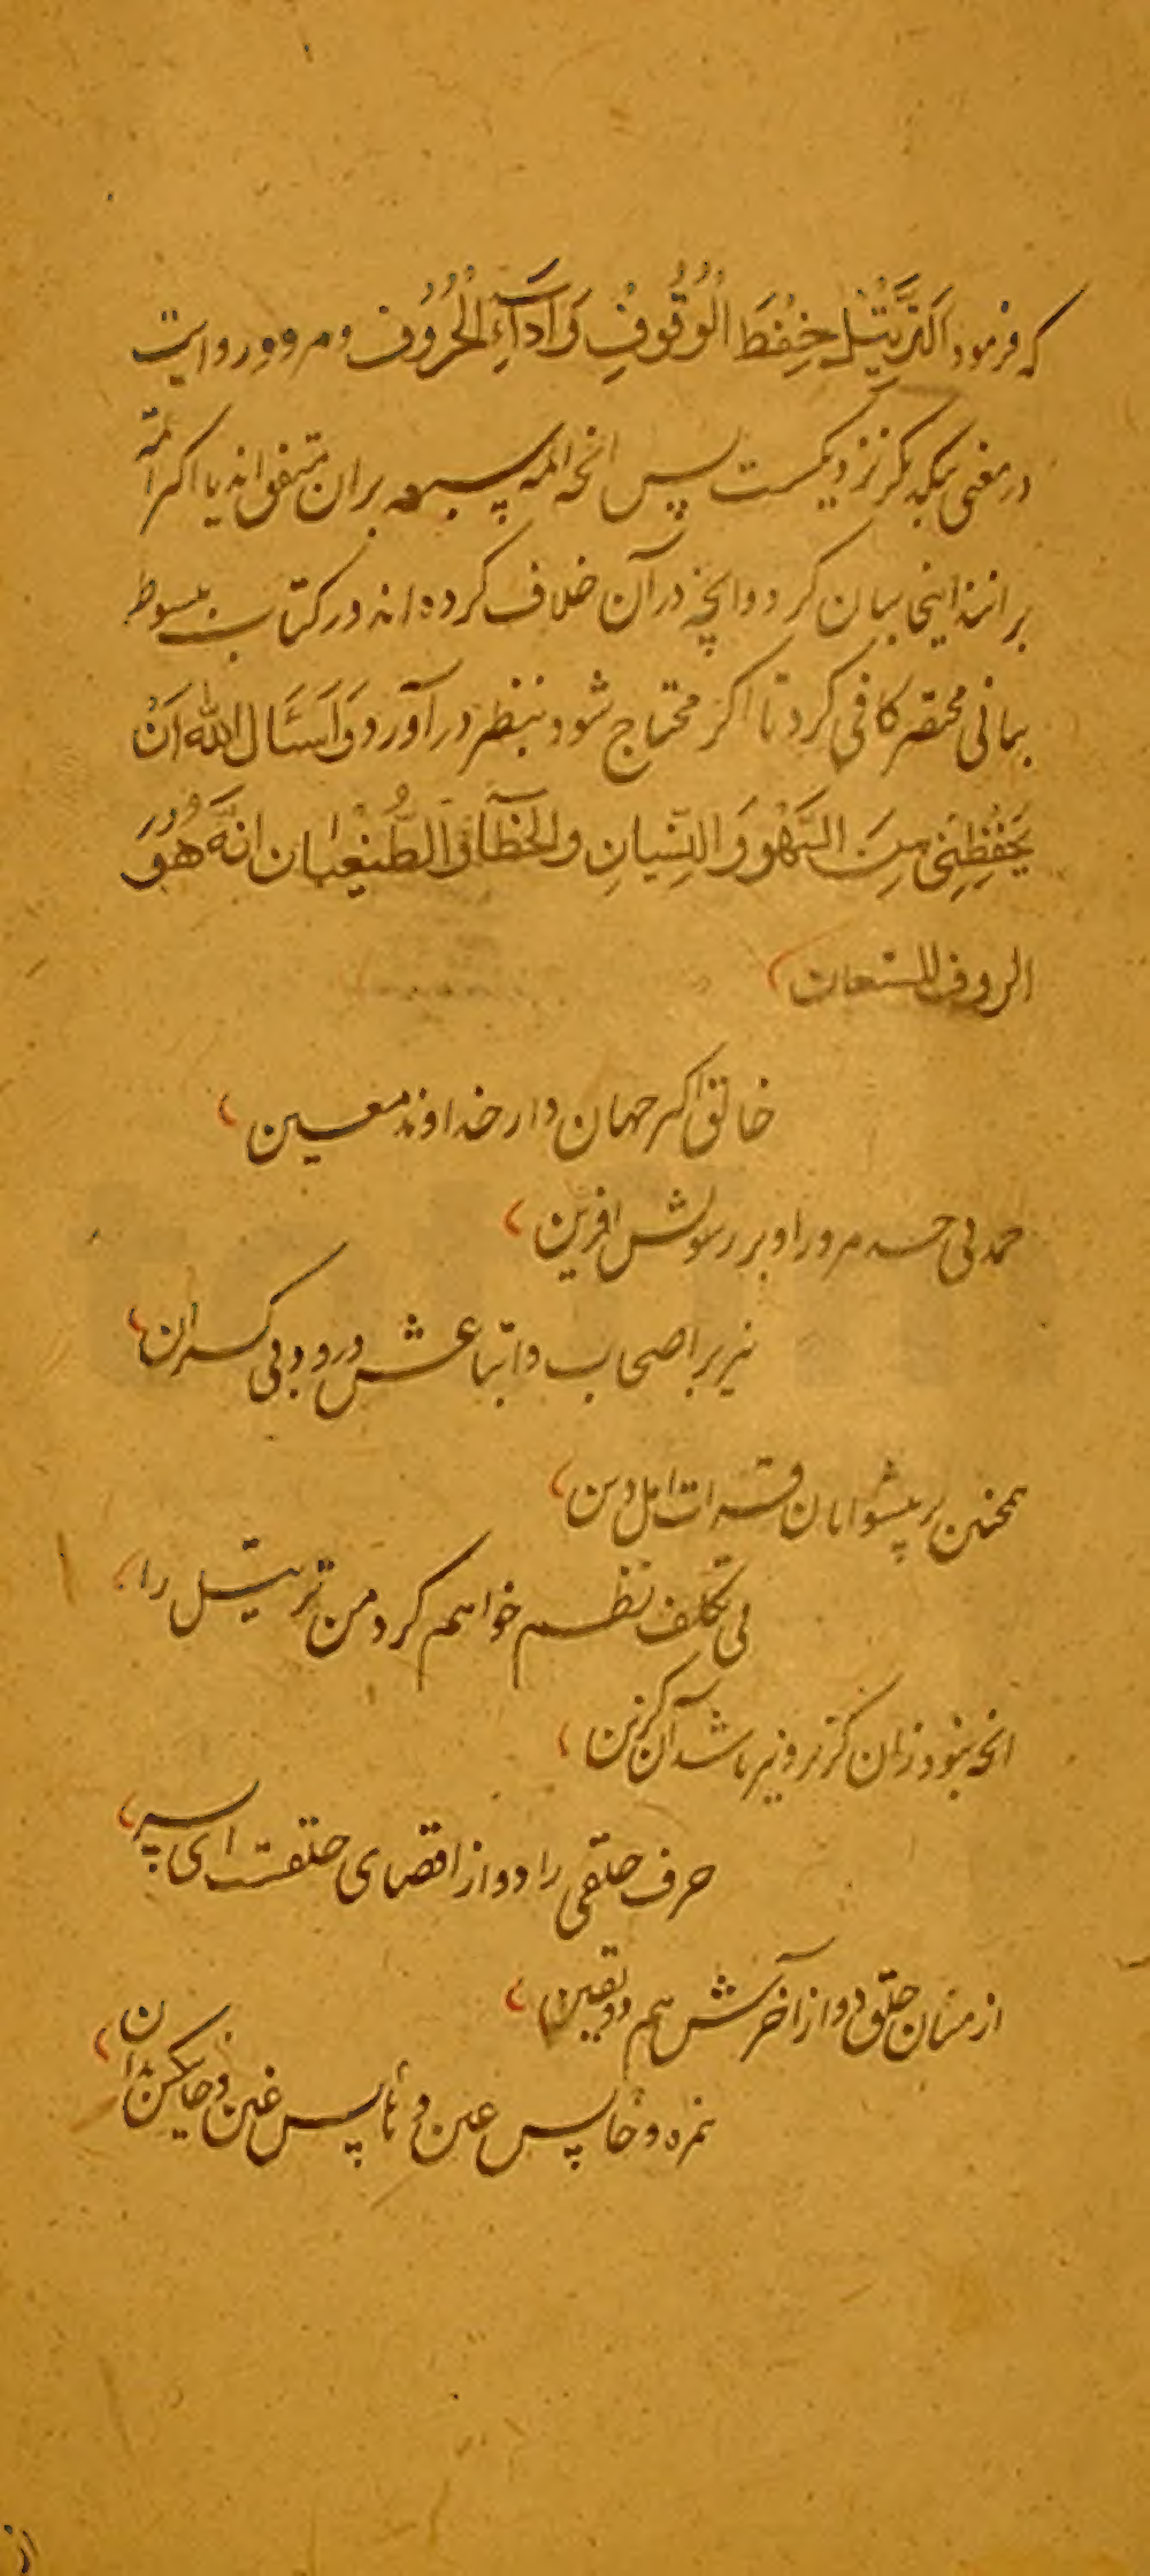 که فرمود اَلتَّرْتِیْل حِفْظَ الْوُقُوفِ وَاَدَآءِ الْحُرُوُف و هر دو روایت
در معنی بیکدیگر نزدیکست پس انچه ائمه سبعه بران متفق اند یا اکثر ائمه
برانند اینجا بیان کرد و انچه در آن خلاف کرده اند در کتاب مبسوط
بیانی مختصر کافی کرد تا اگر محتاج شود بنظر در آورد وَاَسْئَالُ الله اَنْ
یَحْفِظَنِی مِنَ السَّهْوِ وَالنِّسْیانِ والخَطَآ وَالطُّغْیان اِنَّهُ هُوَ
الروف المستعان
خالق اکبر جهان دار خداوند معین
حمد بی حد مر ورا و بر رسولش افرین
نیز بر اصحاب و اتباعش درود بی کران
همچنین بر پیشوایان قرات اهل دین
بی تکلف نظم خواهم کرد من ترتیل را
انچه نبود زان گزیر و نیز باشد آن گزین
حرف حلقی را دو از اقصای حلقست ای پسر
از میان حلق دو از آخرش هم دو یقین
همزه و ها پس عین و حا پس غین و خا یکسن بدان